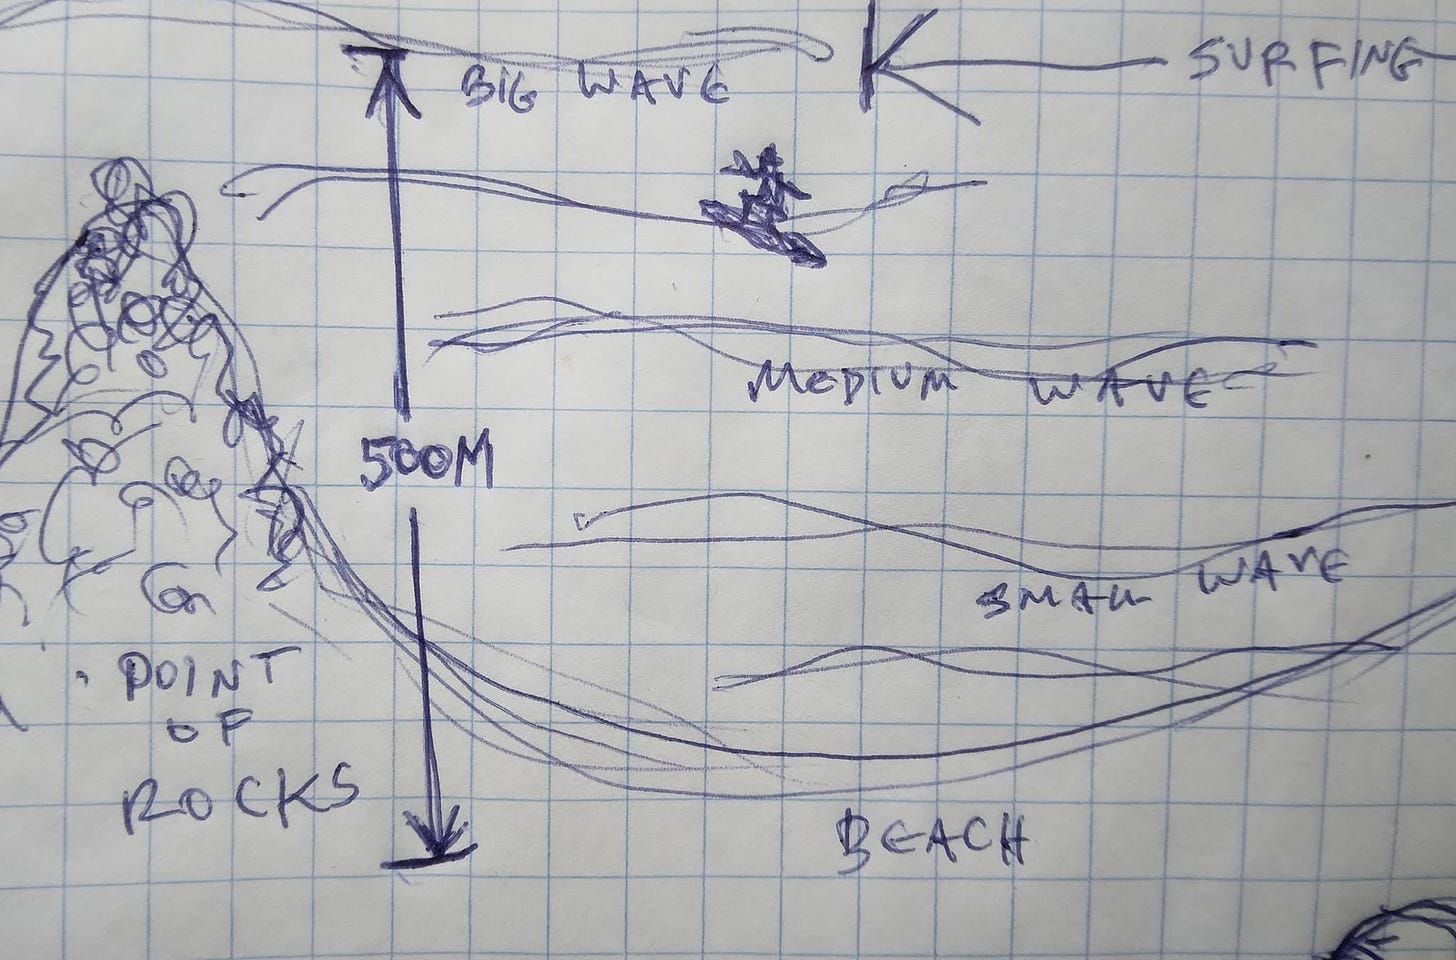 SURFING
BIG WAVE
MEDIUM WAVE
500M
SMALL WAVE
POINT
OF
ROCKS
BEACH